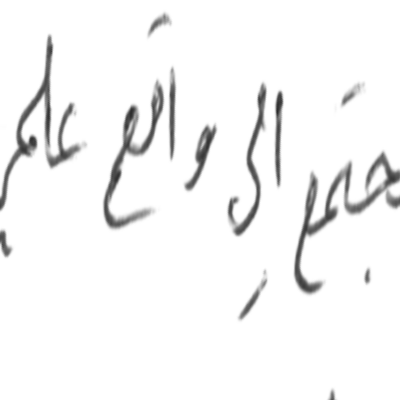 مجتمع إلى واقع علمي